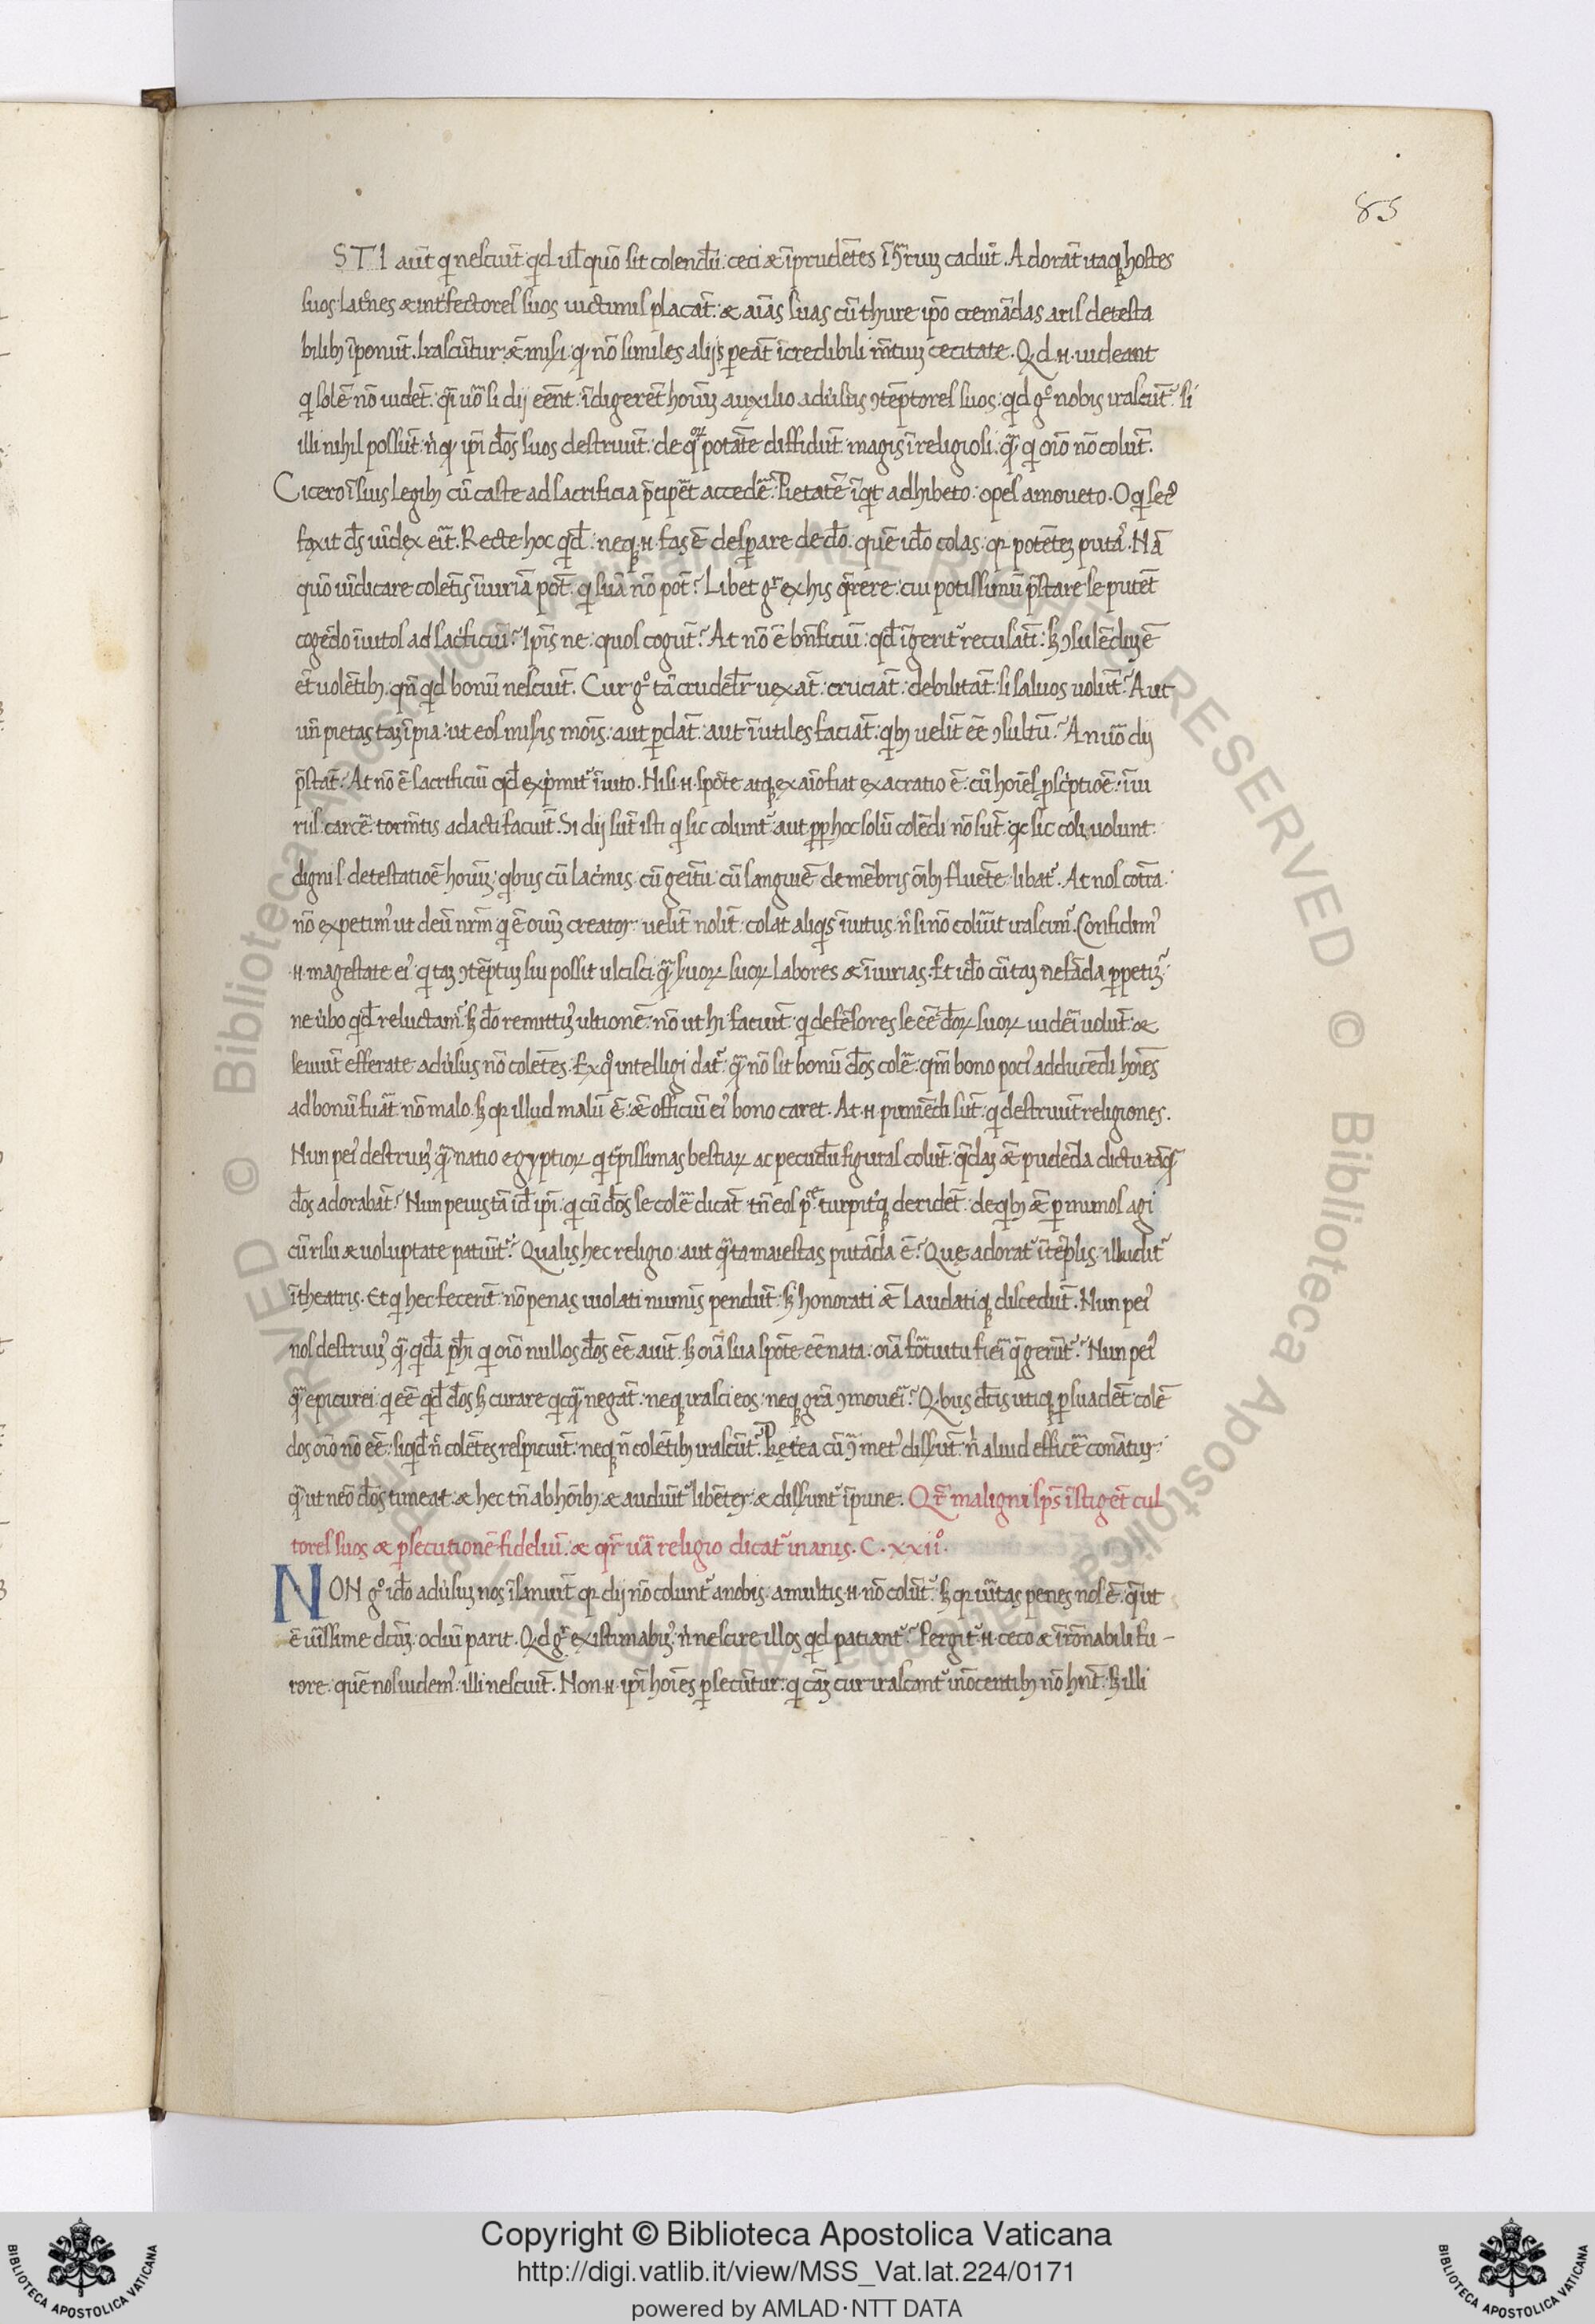 85
STI aūt q nesciūt qd ul quō sit colendū: ceci & īprudētes ī cadūt. Adorāt itaq hostes
suos. latnes & intfectores suos uictimis placāt: & aīas suas cū thure ipō cremādas aris detesta
bilib īponūt. Irascūtur & misi q nō similes alijs peāt īcredibili mtiuʒ cecitate. Qd .n. uideant
q solē nō uidēt. q̄i uō si dij eēnt. īdigerēt hoīuʒ auxilio aduſus ꝯtēptores suos: qd gº nobis irascūt si
illi nihil possūt. ipi dōs suos destruūt. de potāte diffidūt magis īreligiosi. q̄ q oīo nō colūt.
Cicero ī suis legib cū caste ad sacrificia p̄cipēt accedē. Pietatē īqt adhibeto: opes amoueto. O q sec
faxit dʼs uīdex eīt. Recte hoc qd: neq .n. fas ē desperare de dō. quē idō colas. qr potēteʒ putā. Nā
quō uīdicare colētis īiuriā pōt. q suā nō pōt? Libet g ex his q̄rere: cui potissimū p̄stare se putēt
cogēdo īuitos ad sacficiū? Ipīs ne: quos cogūt? At nō ē bnficiū: qd īgerit recusāti: sʒ ꝯsulēduʒ ē
ēt nolētib. qn qd bonū nesciūt. Cur gº tā crudelr uexāt: cruciāt: debilitāt: si saluos uolūt? Aut
uñ pietas taʒ īpia: ut eos misis moīs: aut pdāt: aut īutiles faciāt: qb uelīt eē ꝯsultū? An uō dij
p̄stāt? At nō ē sacrificiū qd expmit īuito. Nisi .n. spōte atq ex aīo fiat exacratio ē: cū hoīes pscptiōe: īiu
riis: carcē: tormtis adacti faciūt. Si dij sūt isti q sic colunt: aut pp hoc solū colēdi nō sūt: qr sic coli uolunt:
digni s detestatiōe hoīuʒ: qbus cū lacmis. cū gemitu cū sanguīe de mēbris oīb fluēte libat. At nos cōtra.
nō expetimꝰ ut deū nrm q ē oīuʒ creator: uelit nolit: colat aliqs īuitus. ñ si nō coluīt irascimꝰ. Confidimꝰ
.n. magestate eiꝰ q taʒ ꝯtēptuʒ sui possit ulcisci q̄ suoꝝ suoꝝ labores & īiurias. Et idō cū taʒ nefāda ppetim
ne ubo qd reluctamꝰ. sʒ dō remittimꝰ ultionē: nō ut hi faciūt. q defēsores se eē doꝝ suoꝝ uideī uolūt &
seuiūt efferate aduſus nō colētes. Ex qº intelligi dat. q̄ nō sit bonū dōs colē. qm bono pociꝰ adducēdi hoīes
ad bonū fuāt nō malo. sʒ qr illud malū ē: & officiū eiꝰ bono caret. At .n. puniēdi sūt. q destruūt religiones.
Nun peiꝰ destruimꝰ. q̄ natio egyptioꝝ q tpissimas bestiaꝝ ac pecudū figuras colūt. q̄daʒ & pudēda dictu tāq
dōs adorabāt? Nun peius tā id ipi. q cū dōs se colē dicāt tñ eos turpitq deridēt: de qb & p mimos agi
cū risu & uoluptate patiūt? Qualis hec religio: aut q̄ta maiestas putāda ē? Que adorat ī tēplis: illudit
ī theatris. Et q hec fecerīt: nō penas uiolati numis pendūt: sʒ honorati & laudatiq discedūt. Nun peiꝰ
nos destruimꝰ q̄ qdā phi q oīo nullos dōs eē aiūt. sʒ oīa sua spōte eē nata: oīa fōrtuitu fieī q̄ gerūt? Nun peiꝰ
q̄ epicurei. q eē qd dōs sʒ curare qcq̄ negāt: neq irasci eos: neq grā ꝯmoueī? Qbus dctis utiq psuadēt colē
dos oīo nō eē: siqd ñ colētes respiciūt: neq ñ colētib irascūt. Pretea cū ꝯ metꝰ dissūt: ñ aliud efficē conātur:
q̄ ut neō dōs timeat: & hec tñ ab hōib: & audiūt libēter: & dissunt īpune. Qr maligni sps īstigēt cul
tores suos & psecutionē fideliū. & qr uā religio dicat inanis. C. xxiiº.
NON gº idō aduſuʒ nos īsaniūt qr dij nō colunt a nobis. a multis .n. nō colūt: sʒ qr uitas penes nos ē. q̄ ut
ē uissime dcm: odiū parit. Qd g existimabimꝰ. ñ nescire illos qd patiant? Pergit .n. ceco & īrōnabili fu-
rore: quē nos uidemꝰ. illi nesciūt. Non .n. ipi hoīes psecūtur: q cāʒ cur irascant inōcentib nō hnt: sʒ illi
Copyright © Biblioteca Apostolica Vaticana
http://digi.vatlib.it/view/MSS_Vat.lat.224/0171
powered by AMLAD·NTT DATA